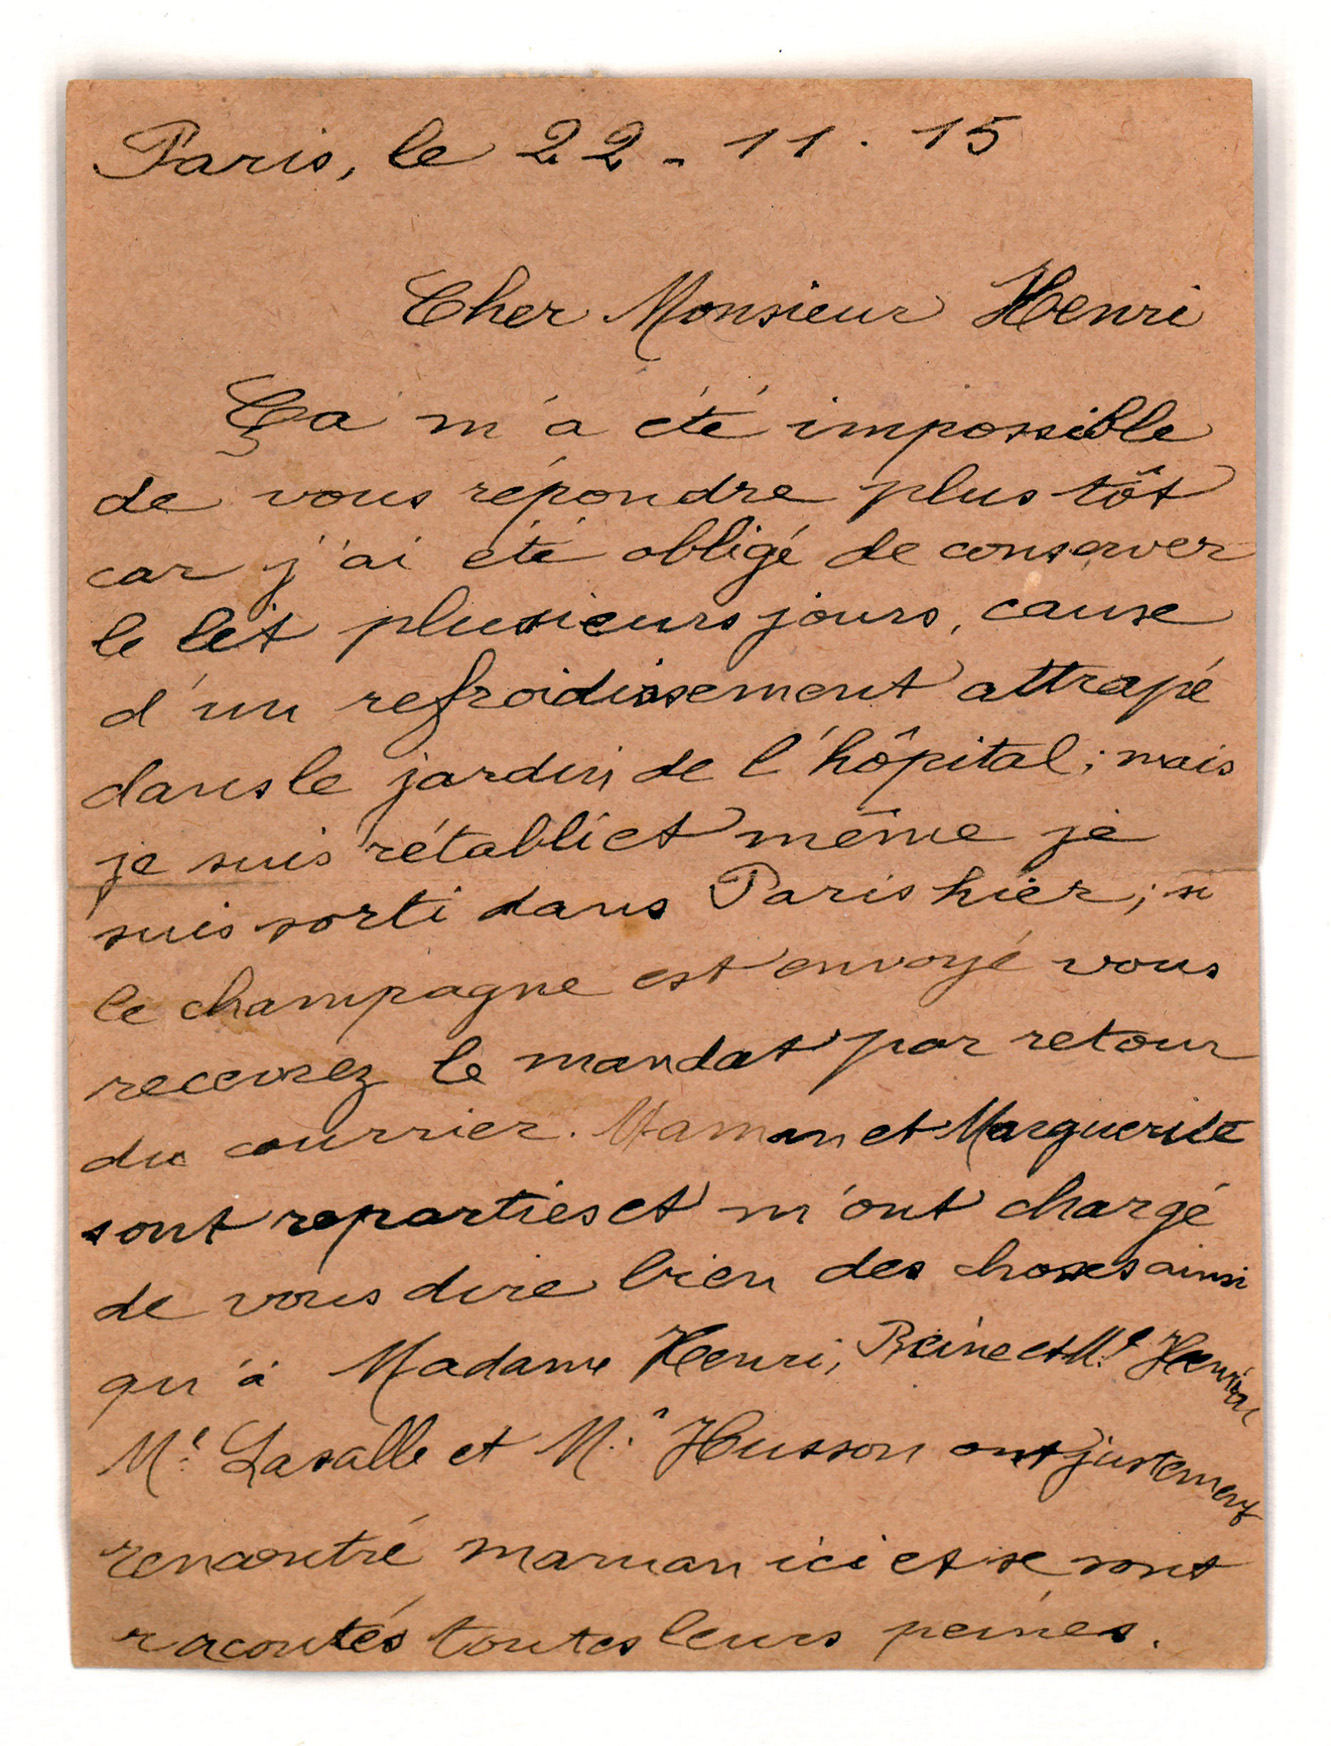 Paris, le 22 - 11 . 15
Cher Monsieur Henri
Ça m'a été impossible
de vous répondre plus tôt
car j'ai été obligé de conserver
le lit plusieurs jours, cause
d'un refroidissement attrapé
dans le jardin de l'hôpital ; mais
je suis rétabli et même je
suis sorti dans Paris hier ; si
le champagne est envoyé vous
recevrez le mandat par retour
du courrier. Maman et Marguerite
sont reparties et m'ont chargé
de vous dire bien des choses ainsi
qu'à Madame Henri, Reine et
Me Lasalle et M. Husson ont justement
rencontré maman ici et se sont
racontés toutes leurs peines.